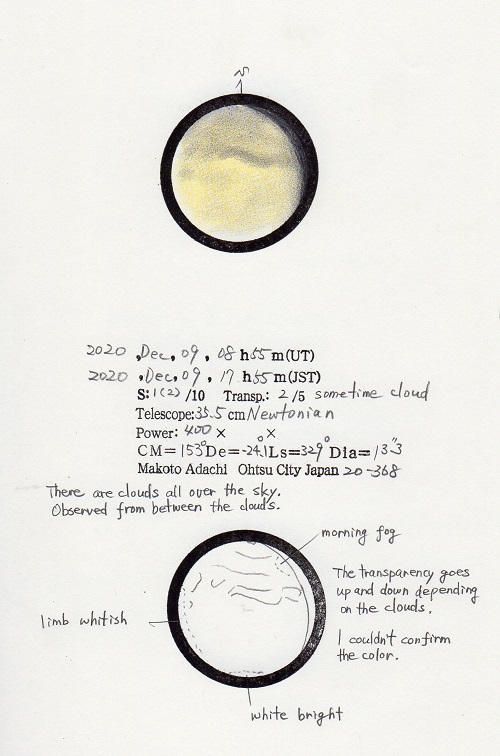 S
2020 ,Dec, 09 , 08 h 55 m(UT)
2020 ,Dec, 09 , 17 h 55 m(JST)
S: 1(2) /10 Transp.: 2 /5 sometime cloud
Telescope:35.5 cm Newtonian
Power: 400 × ×
CM= 153° De= -24.1° Ls= 329° Dia= 13".3
Makoto Adachi Ohtsu City Japan 20-368
There are clouds all over the sky.
Observed from between the clouds.
morning fog
The transparency goes
up and down depending
on the clouds.
limb whitish
I couldn't confirm
the color.
white bright